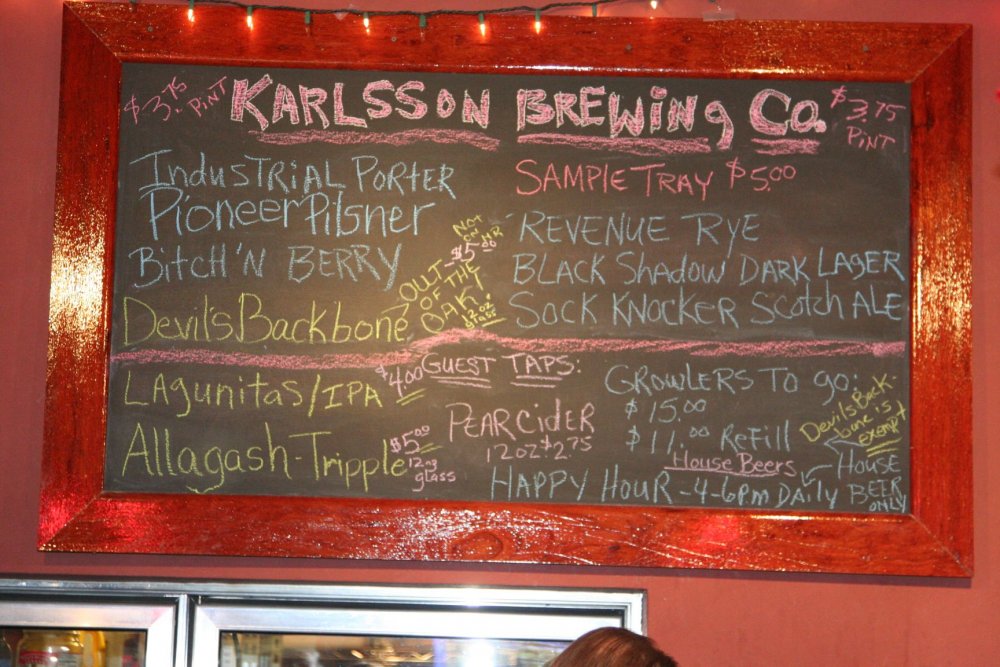 $3.75 PINT
KARLSSON BREWING CO.
$3.75 PINT
INDUSTRIAL PORTER
Pioneer Pilsner
BITCH 'N BERRY
Devil's Backbone
OUT OF THE OAK
NOT ON HR
$5.00
12 oz glass
SAMPLE TRAY $5.00
REVENUE RYE
BLACK SHADOW DARK LAGER
SOCK KNOCKER SCOTCH ALE
GUEST TAPS:
LAGUNITAS/IPA $4.00
Allagash-Tripple $5.00
12 oz glass
PEAR CIDER
12oz $2.75
GROWLERS TO GO:
$15.00
$11.00 ReFill
House Beers
Devil's Back-
bone is
exempt
HAPPY HOUR - 4-6pm DAily
HOUSE
BEER
ONLY